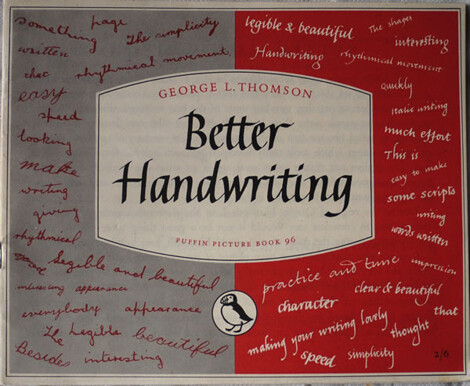 something page
The simplicity
written
rhythmical movement
easy
speed
looking
make
writing
giving
rhythmical
legible and beautiful
interesting appearance
everybody appearance
The legible beautiful
Besides interesting
legible & beautiful
The shapes
interesting
Handwriting rhythmical movement
quickly
italic writing
much effort
This is
easy to make
some scripts
writing
words written
GEORGE L. THOMSON
Better
Handwriting
PUFFIN PICTURE BOOK 96
practice and time
impression
character
clear & beautiful
that
making your writing lovely
thought
speed
simplicity
2/6